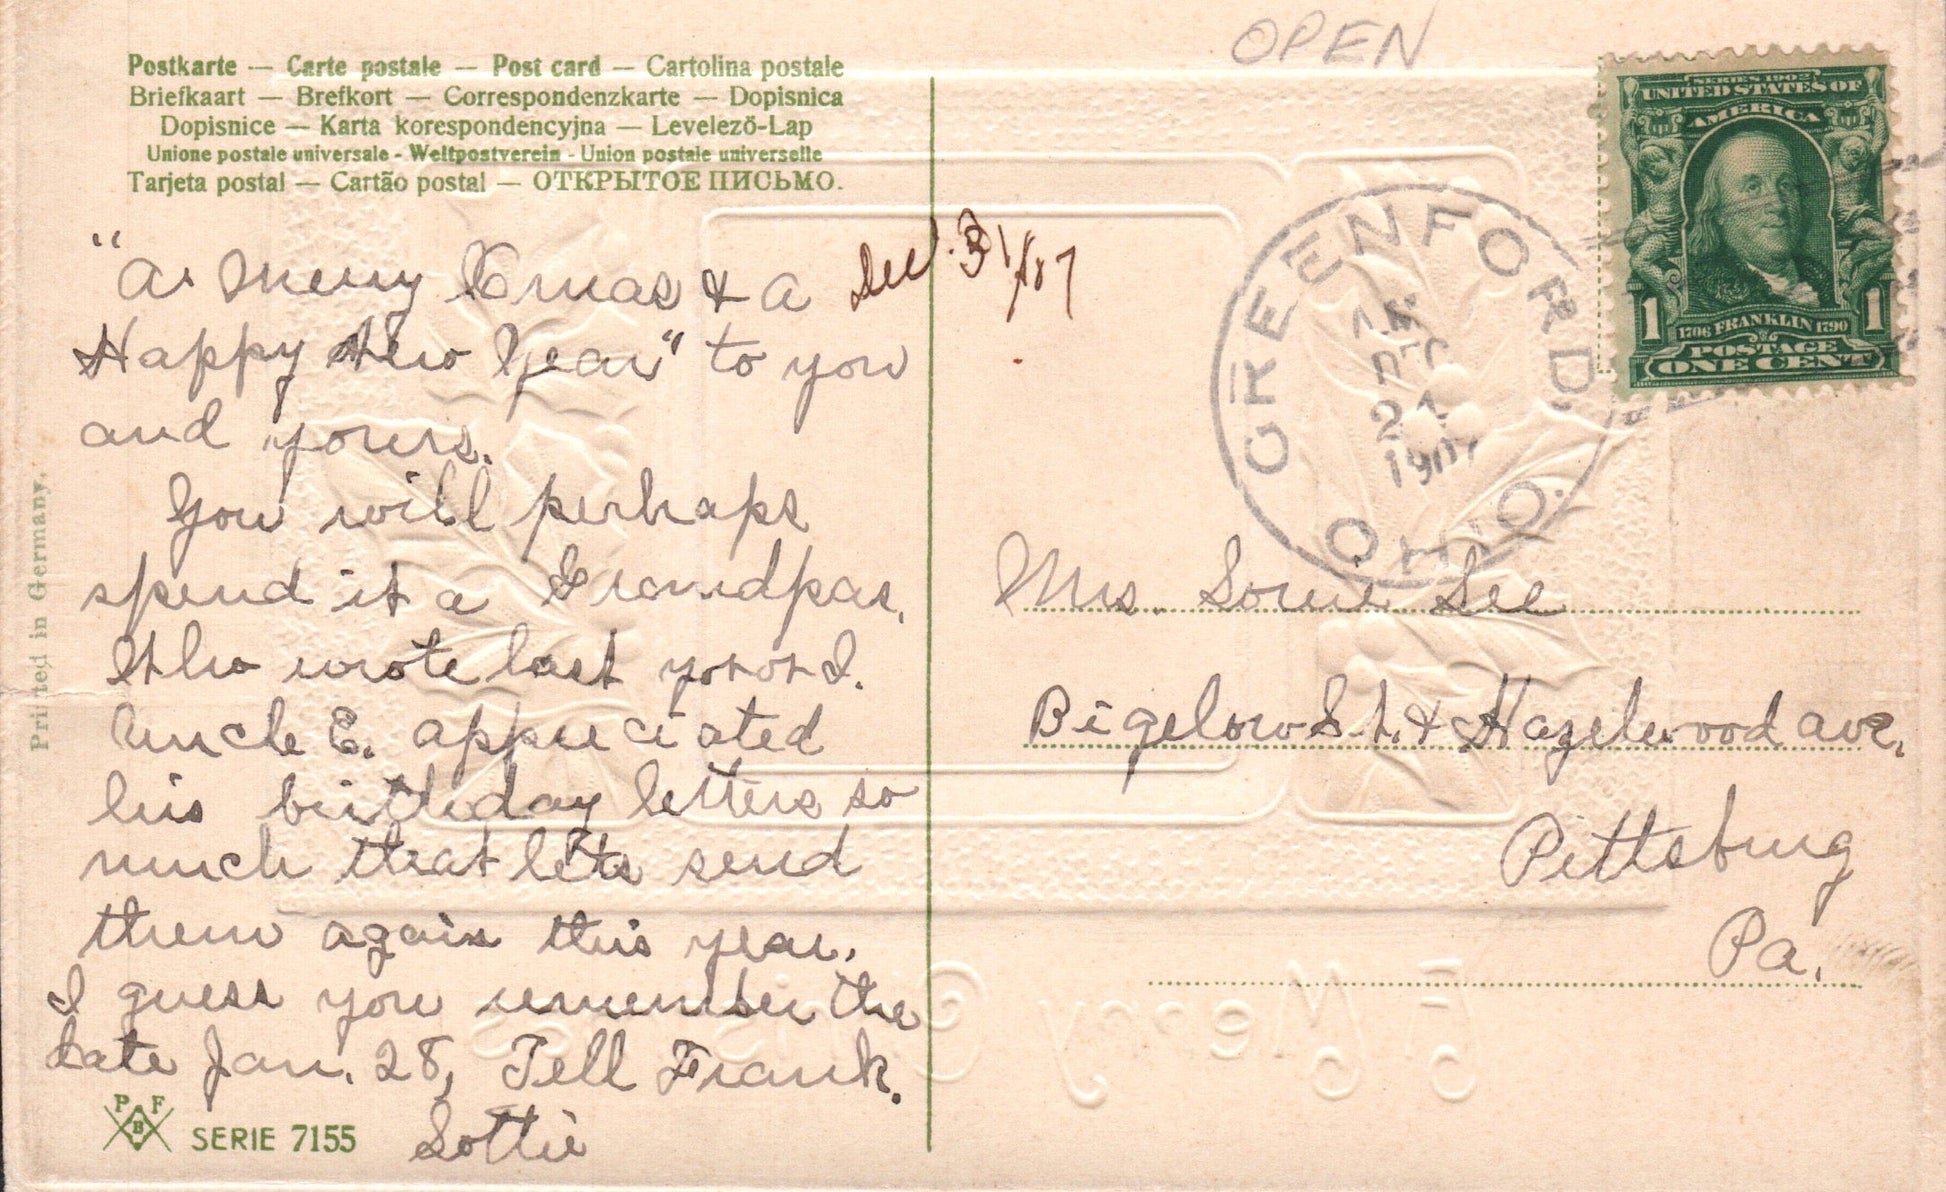 OPEN
Postkarte — Carte postale — Post card — Cartolina postale
Briefkaart — Brefkort — Correspondenzkarte — Dopisnica
Dopisnice — Karta korespondencyjna — Levelező-Lap
Unione postale universale - Weltpostverein - Union postale universelle
Tarjeta postal — Cartão postal — ОТКРЫТОЕ ПИСЬМО.
"A Merry Xmas & a
Happy New Year" to you
and yours.
You will perhaps
spend it a Grandpas.
Who wrote last you or I.
Uncle E. appreciated
his birthday letters so
much that lets send
them again this year.
I guess you remember the
date Jan. 28, Tell Frank.
Lottie
Dec. 31/07
Printed in Germany.
P F
B
SERIE 7155
GREENFORD.
OHIO.
DEC
1907
SERIES 1902
UNITED STATES OF
AMERICA
1 1
1706 FRANKLIN 1790
POSTAGE
ONE CENT
Mrs. Louie Lee
Bigelow St. & Hazelwood ave.
Pittsburg
Pa.
A Merry Christmas